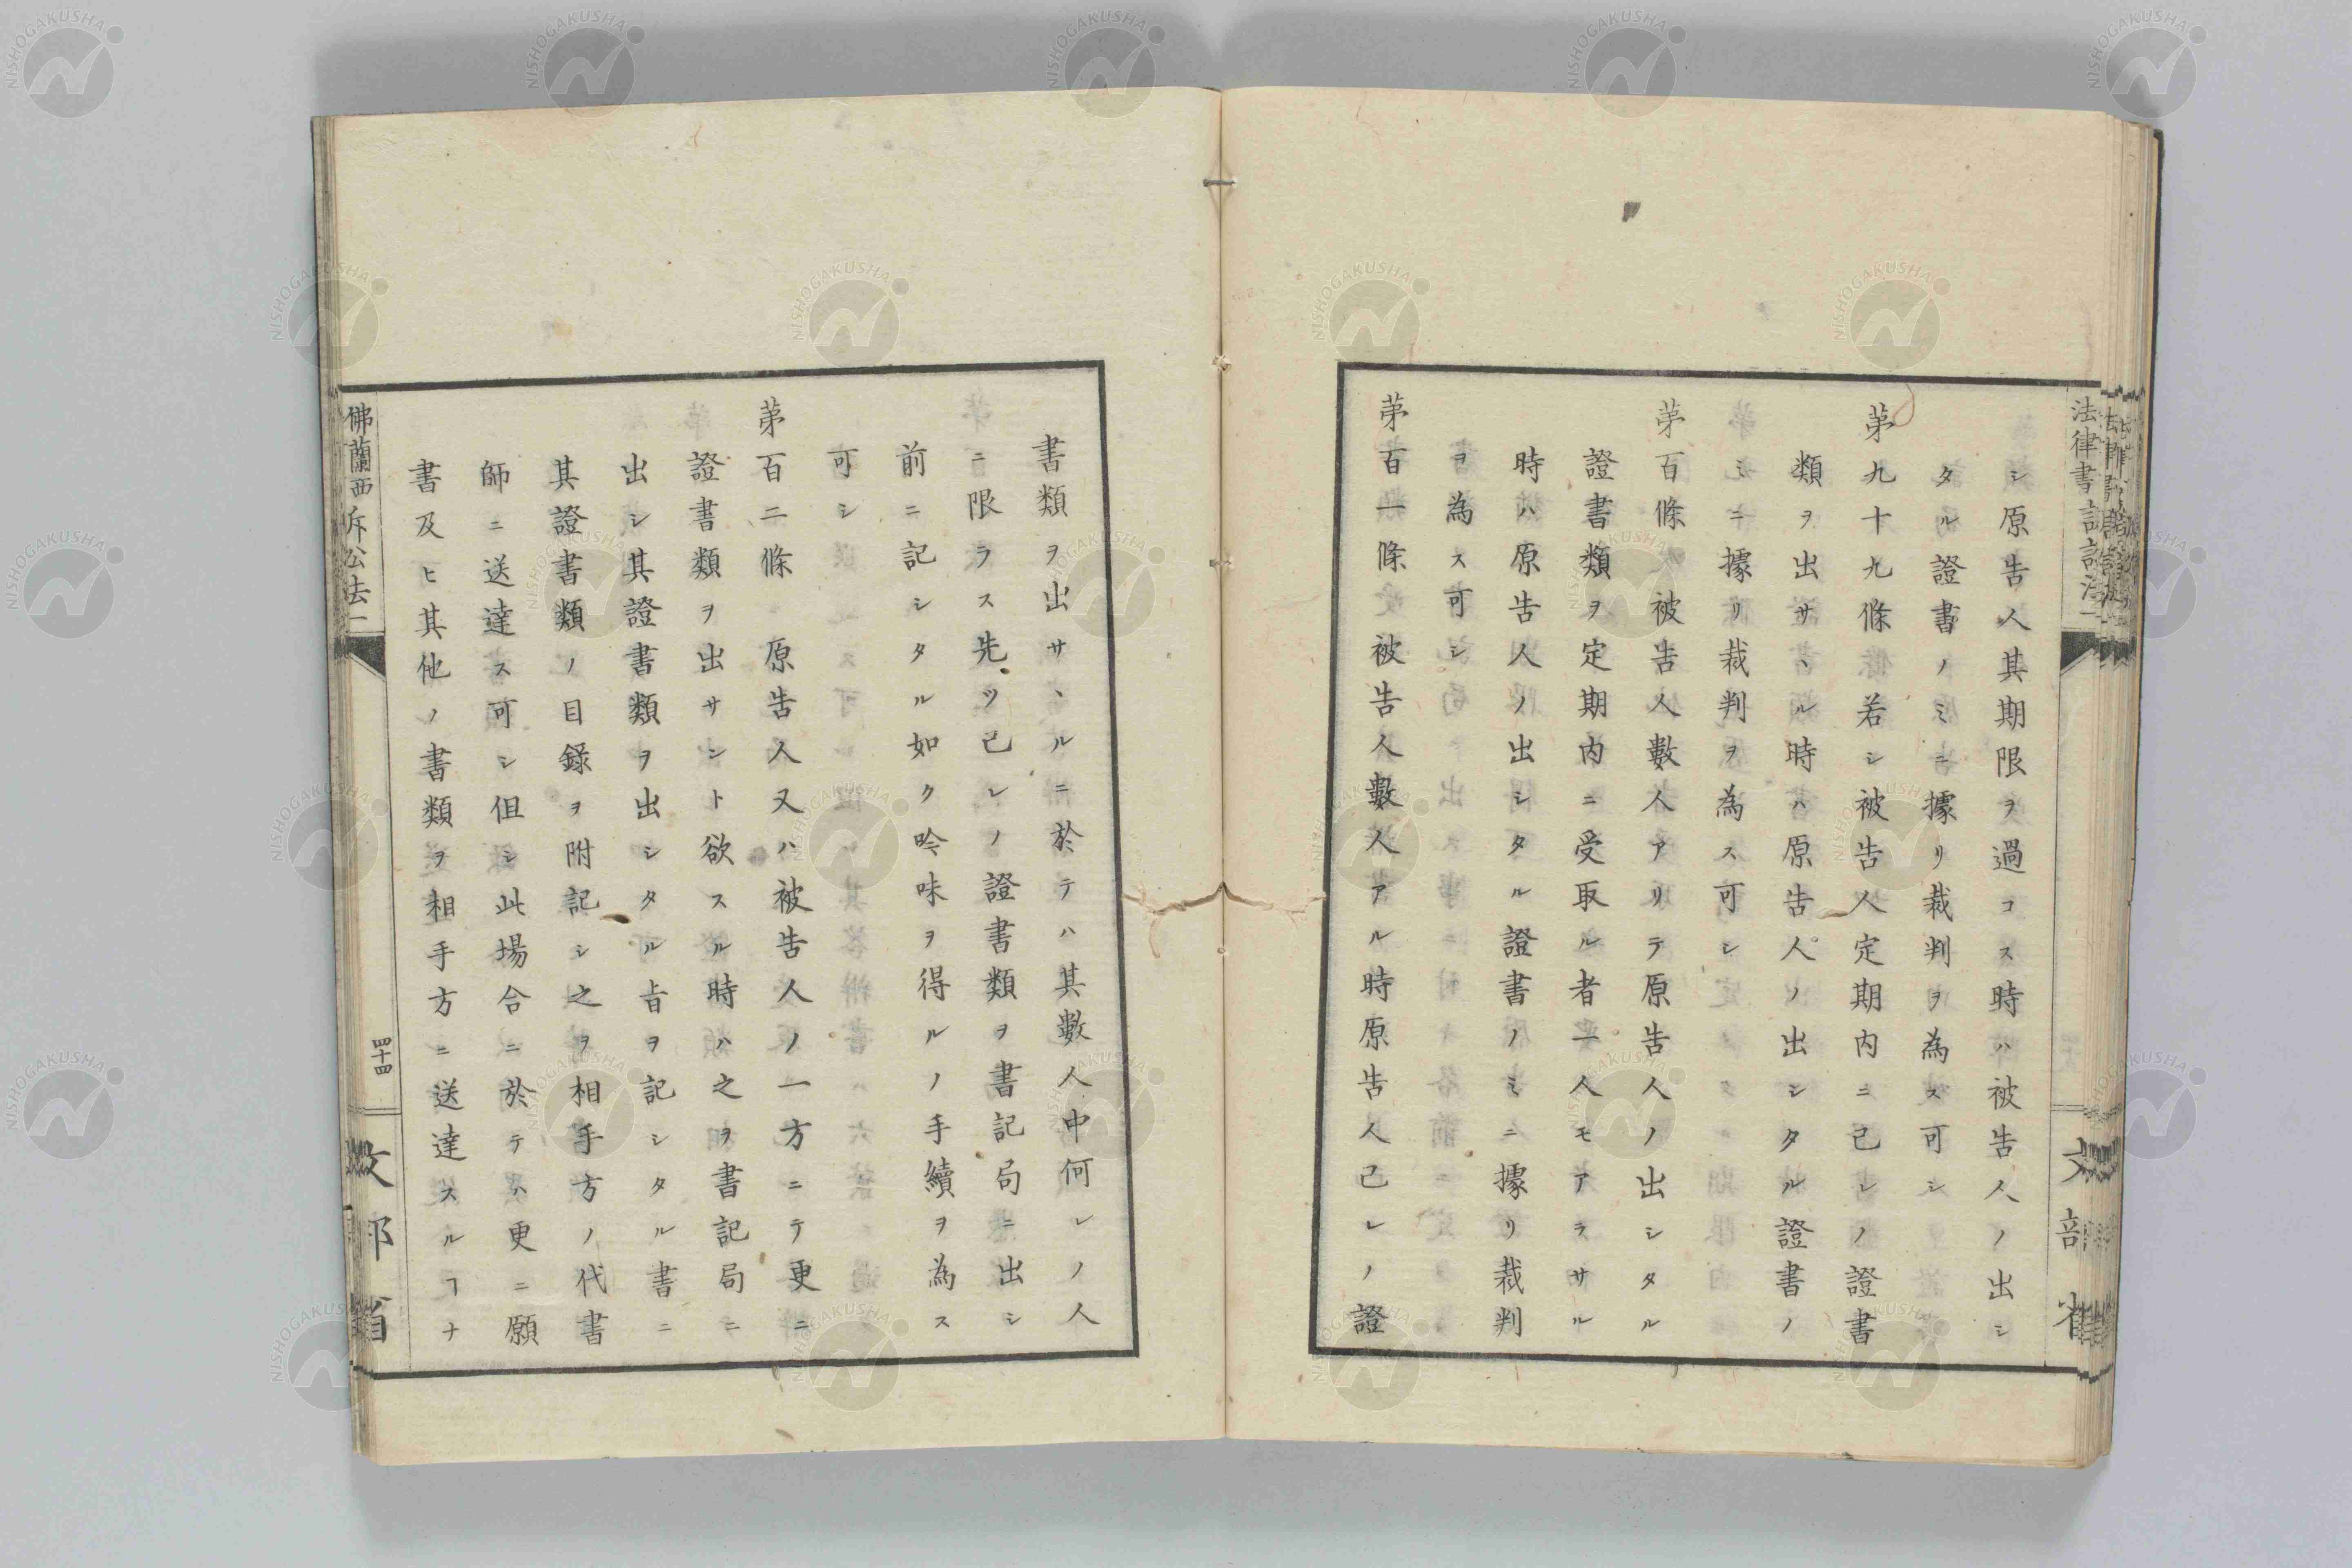 シ原告人其期限ヲ過コス時ハ被告人ノ出シ
タル證書ノミニ據リ裁判ヲ為ス可シ
苐九十九條 若シ被告人定期内ニ己レノ證書
類ヲ出サヽル時ハ原告人ノ出シタル證書ノ
ミニ據リ裁判ヲ為ス可シ
苐百條 被告人數人アリテ原告人ノ出シタル
證書類ヲ定期内ニ受取ル者一人モアラサル
時ハ原告人ノ出シタル證書ノミニ據リ裁判
ヲ為ス可シ
苐百一條 被告人數人アル時原告人己レノ證
書類ヲ出サヽルニ於テハ其數人中何レノ人
ニ限ラス先ツ己レノ證書類ヲ書記局ニ出シ
前ニ記シタル如ク吟味ヲ得ルノ手續ヲ為ス
可シ
苐百二條 原告人又ハ被告人ノ一方ニテ更ニ
證書類ヲ出サント欲スル時ハ之ヲ書記局ニ
出シ其證書類ヲ出シタル旨ヲ記シタル書ニ
其證書類ノ目録ヲ附記シ之ヲ相手方ノ代書
師ニ送達ス可シ但シ此場合ニ於テハ更ニ願
書及ヒ其他ノ書類ヲ相手方ニ送達スルヿナ
佛蘭西訴訟法一
四十四
文部省
NISHOGAKUSHA